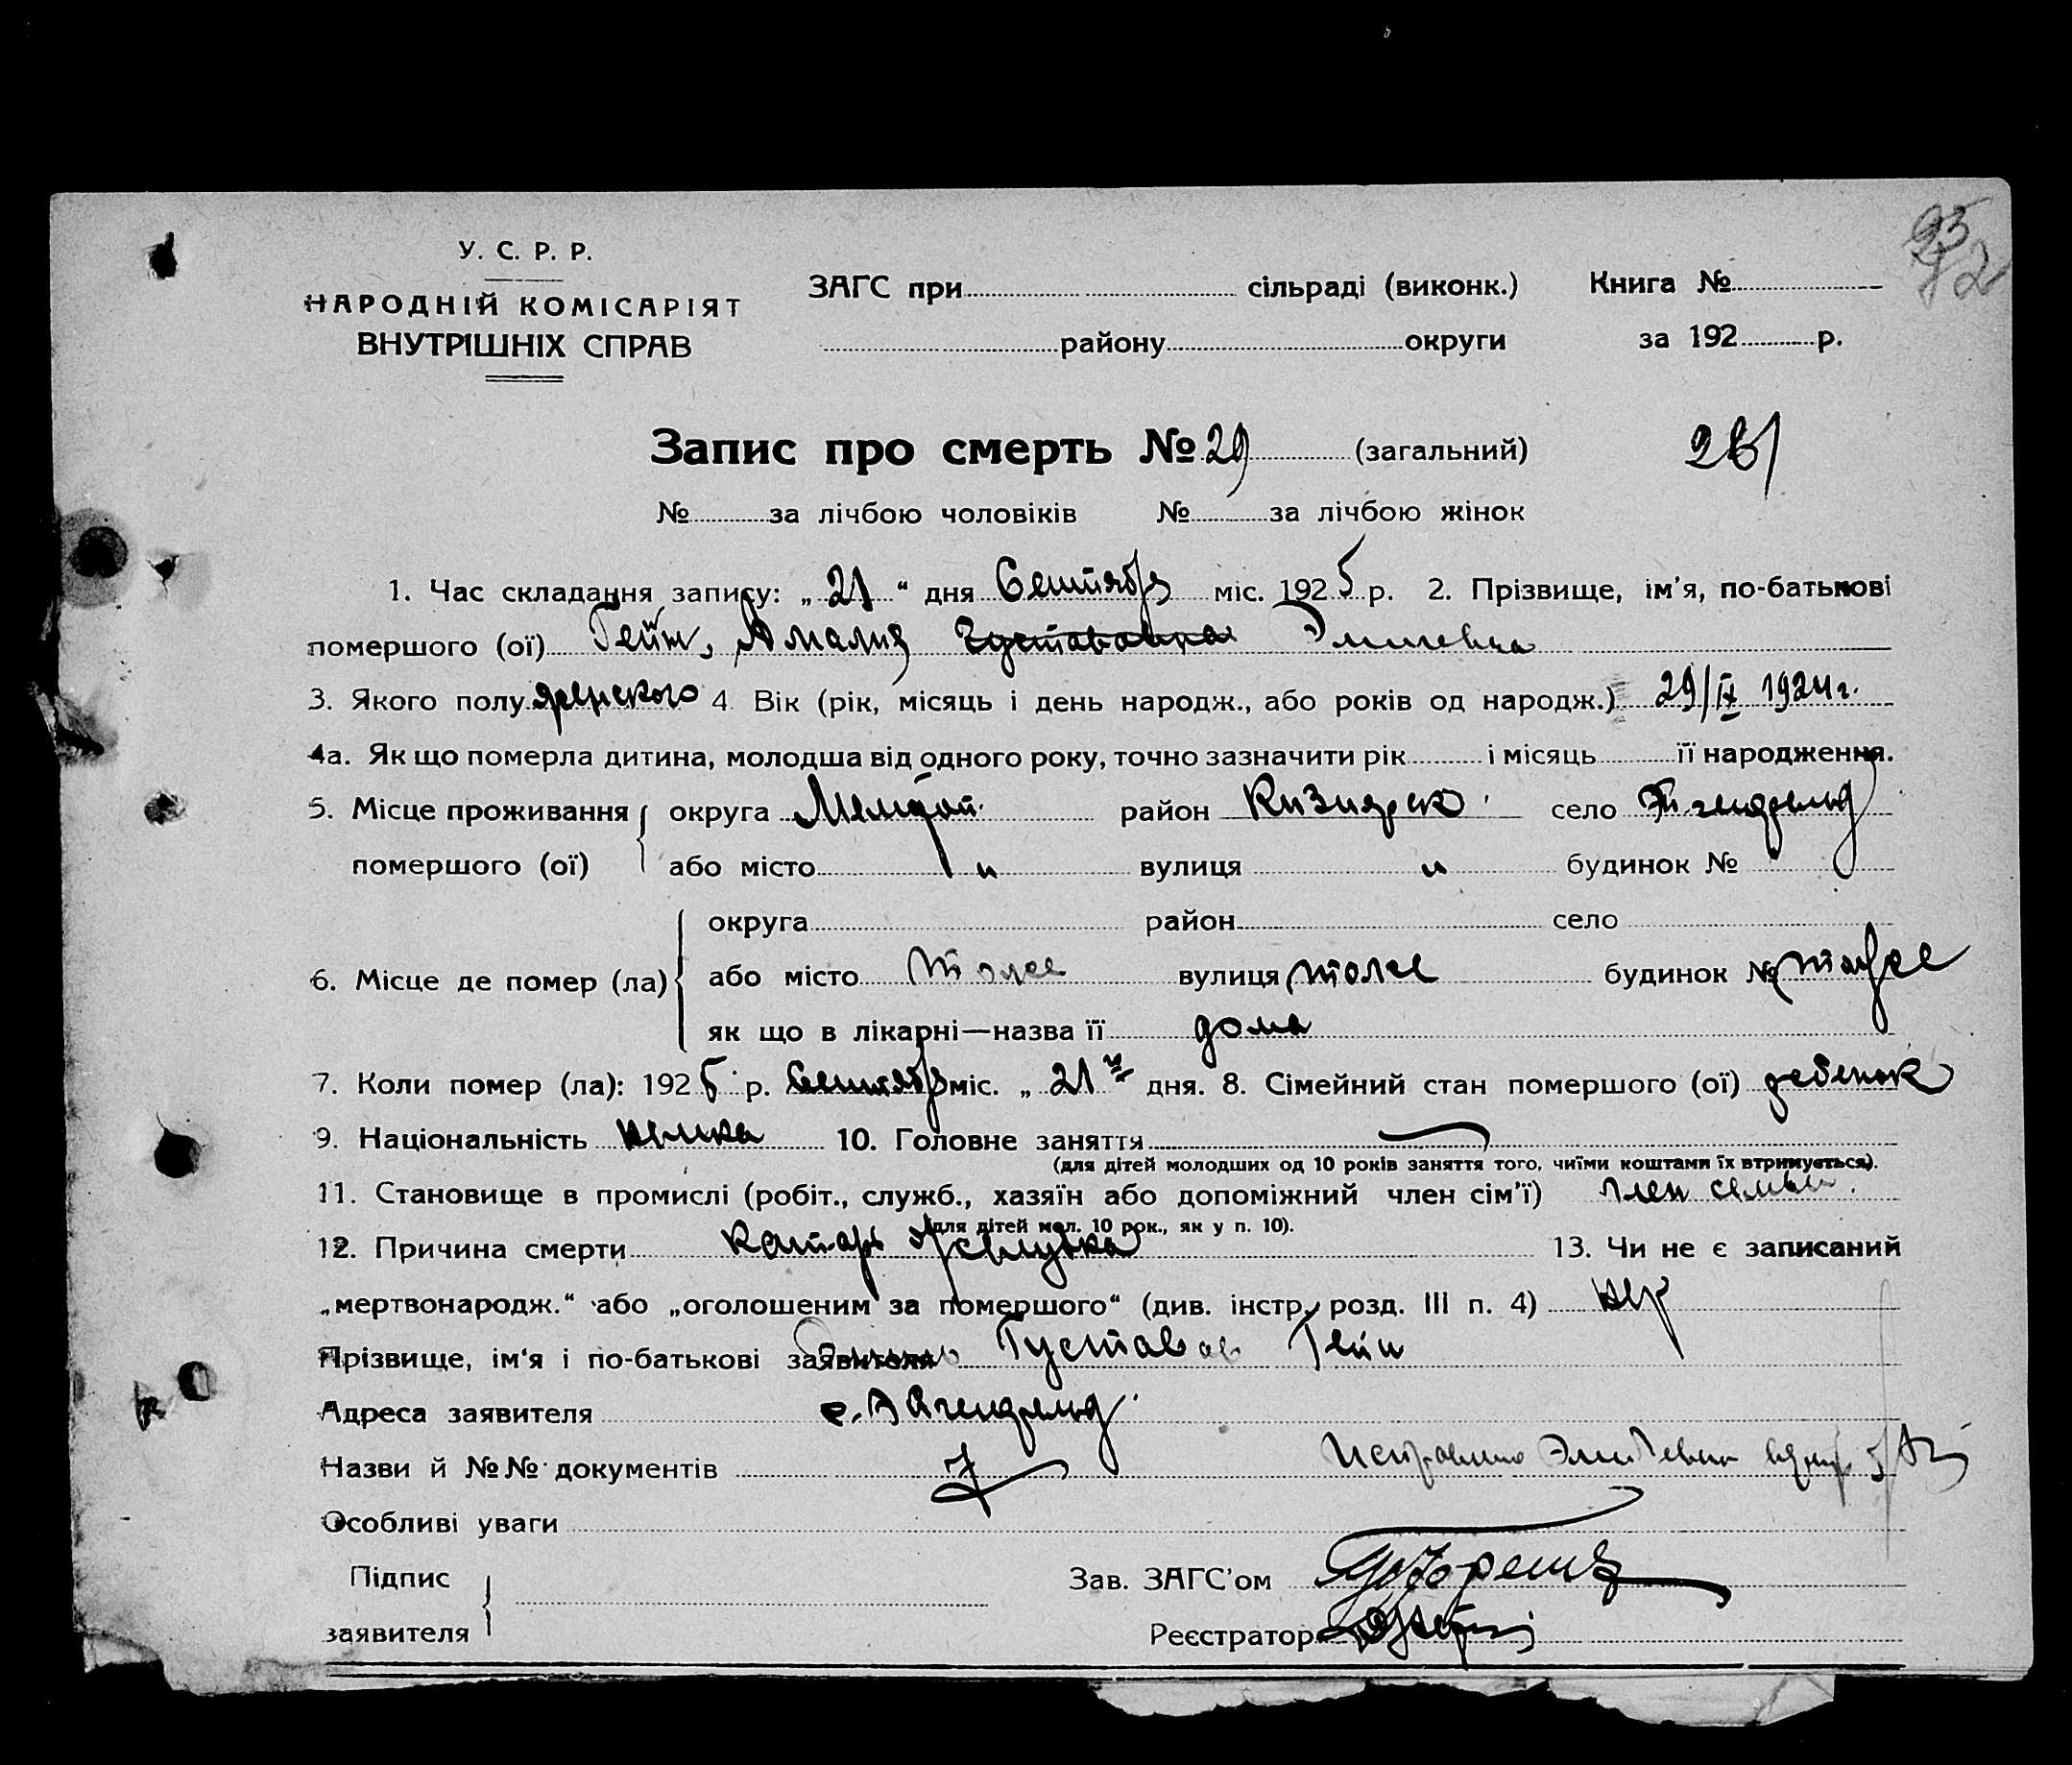 У. С. Р. Р.
НАРОДНІЙ КОМІСАРІЯТ
ВНУТРІШНІХ СПРАВ
ЗАГС при сільраді (виконк.)
району округи
Книга №
за 192 р.
Запис про смерть № 29 (загальний)
№ за лічбою чоловіків № за лічбою жінок
1. Час складання запису: „ 21 “ дня Сентября міс. 1925 р. 2. Прізвище, ім'я, по-батькові
помершого (ої) Гейн, Амалия Густавовна Эмилевна
3. Якого полу женского 4. Вік (рік, місяць і день народж., або років од народж.) 29/IV 1924 г.
4а. Як що померла дитина, молодша від одного року, точно зазначити рік і місяць її народження.
5. Місце проживання помершого (ої) округа район село
або місто " вулиця " будинок №
6. Місце де помер (ла) округа район село
або місто тоже вулиця тоже будинок № тоже
як що в лікарні—назва її дома
7. Коли помер (ла): 1925 р. Сентября міс. „ 21 дня. 8. Сімейний стан помершого (ої) ребенок
9. Національність немка 10. Головне заняття
(для дітей молодших од 10 років заняття того, чиїми коштами їх втримується).
11. Становище в промислі (робіт., служб., хазяїн або допоміжний член сім'ї) член семьи.
(для дітей мол. 10 рок., як у п. 10).
12. Причина смерти катарр желудка 13. Чи не є записаний
„мертвонародж.“ або „оголошеним за помершого“ (див. інстр. розд. III п. 4)
Прізвище, ім'я і по-батькові заявителя Густавов Гейн
Адреса заявителя
Назви й №№ документів
Особливі уваги
Підпис заявителя
Зав. ЗАГС'ом
Реєстратор